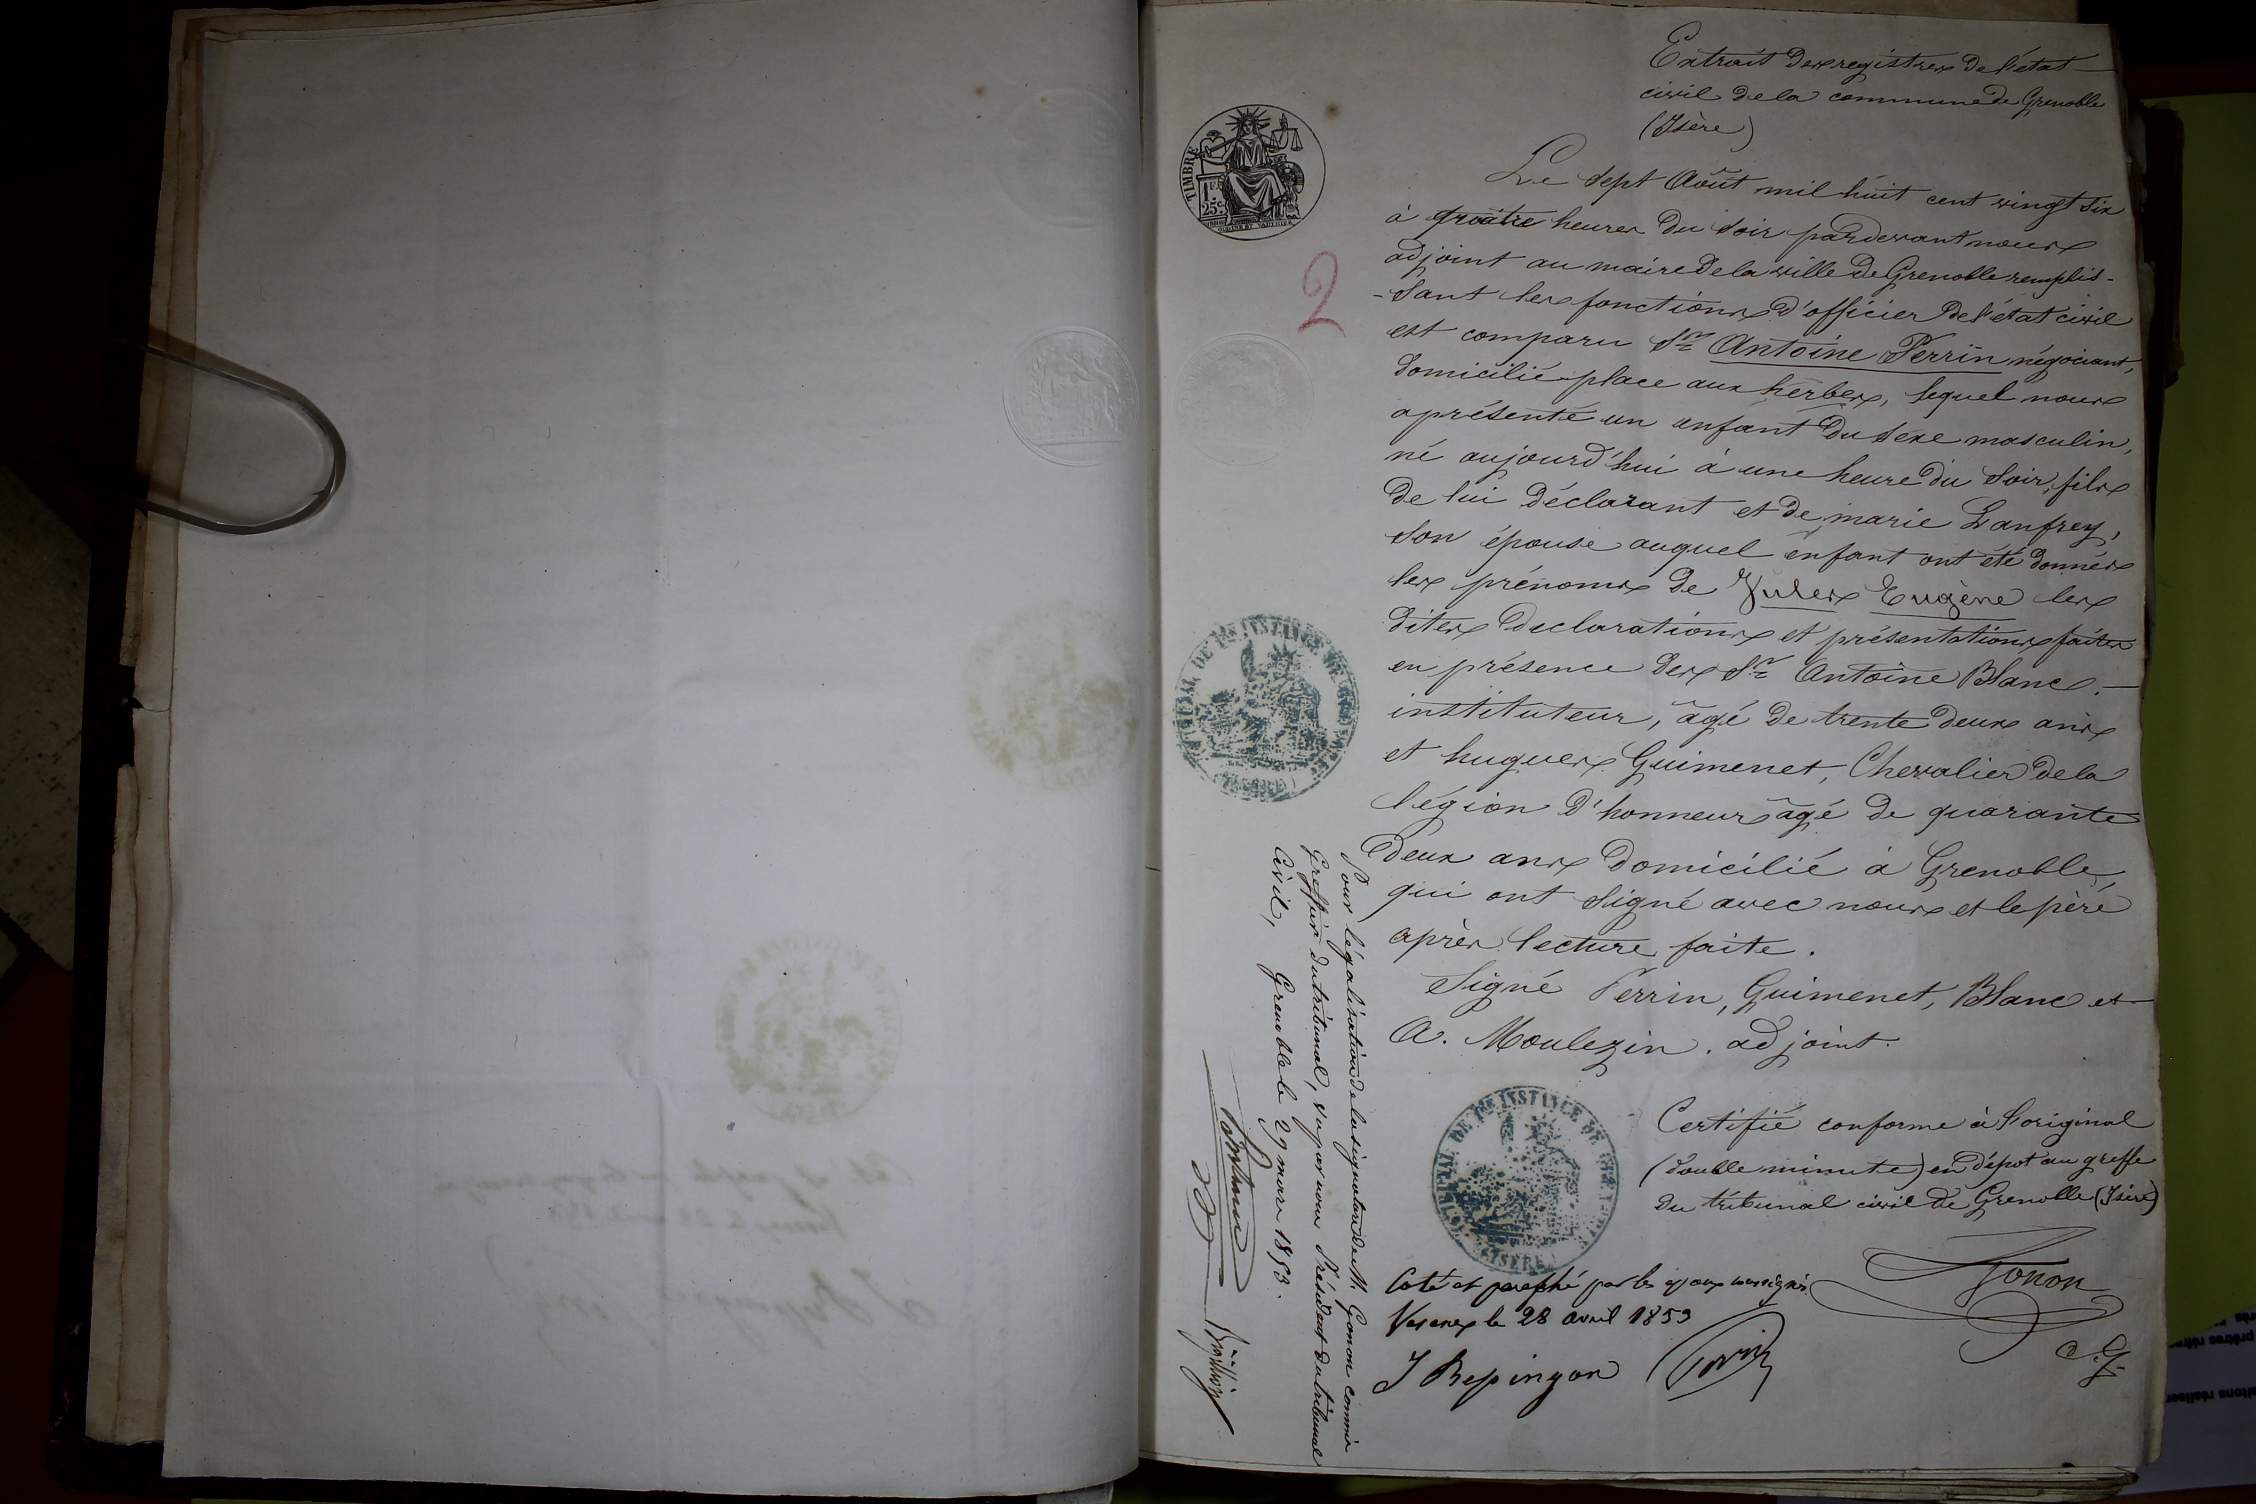 Extrait des registres de l'état
civil de la commune de Grenoble
(Isère)
TIMBRE
1F.
25c.
2
Le sept Août mil huit cent vingt six
à quatre heures du soir pardevant nous
adjoint au maire de la ville de Grenoble remplis-
-sant les fonctions d'officier de l'état civil
est comparu Sr Antoine Perrin négociant,
domicilié place aux herbes, lequel nous
a présenté un enfant du sexe masculin,
né aujourd'hui à une heure du soir, fils
de lui déclarant et de marie Lanfrey,
son épouse auquel enfant ont été donnés
les prénoms de Jules Eugène les
dites declarations et présentations faites
en présence des Srs Antoine Blanc.
instituteur, âgé de trente deux ans
et hugues Guimenet, Chevalier de la
légion d'honneur âgé de quarante
deux ans domicilié à Grenoble,
qui ont signé avec nous et le père
après lecture faite.
Signé Perrin, Guimenet, Blanc et
A. Moulezin. adjoint.
TRIBUNAL DE 1RE INSTANCE DE GRENOBLE
(ISÈRE)
Certifié conforme à l'original
(double minute) en dépot au greffe
du tribunal civil de Grenoble (Isère)
Gonon
TRIBUNAL DE 1RE INSTANCE DE GRENOBLE
(ISÈRE)
Coté et paraphé par les époux soussignés
le 28 avril 1853
J Repingon
Pour légalisation de la signature de M. Gonon commis
Greffier du tribunal, vu par nous Président du tribunal
Civil, Grenoble le 29 mars 1853.